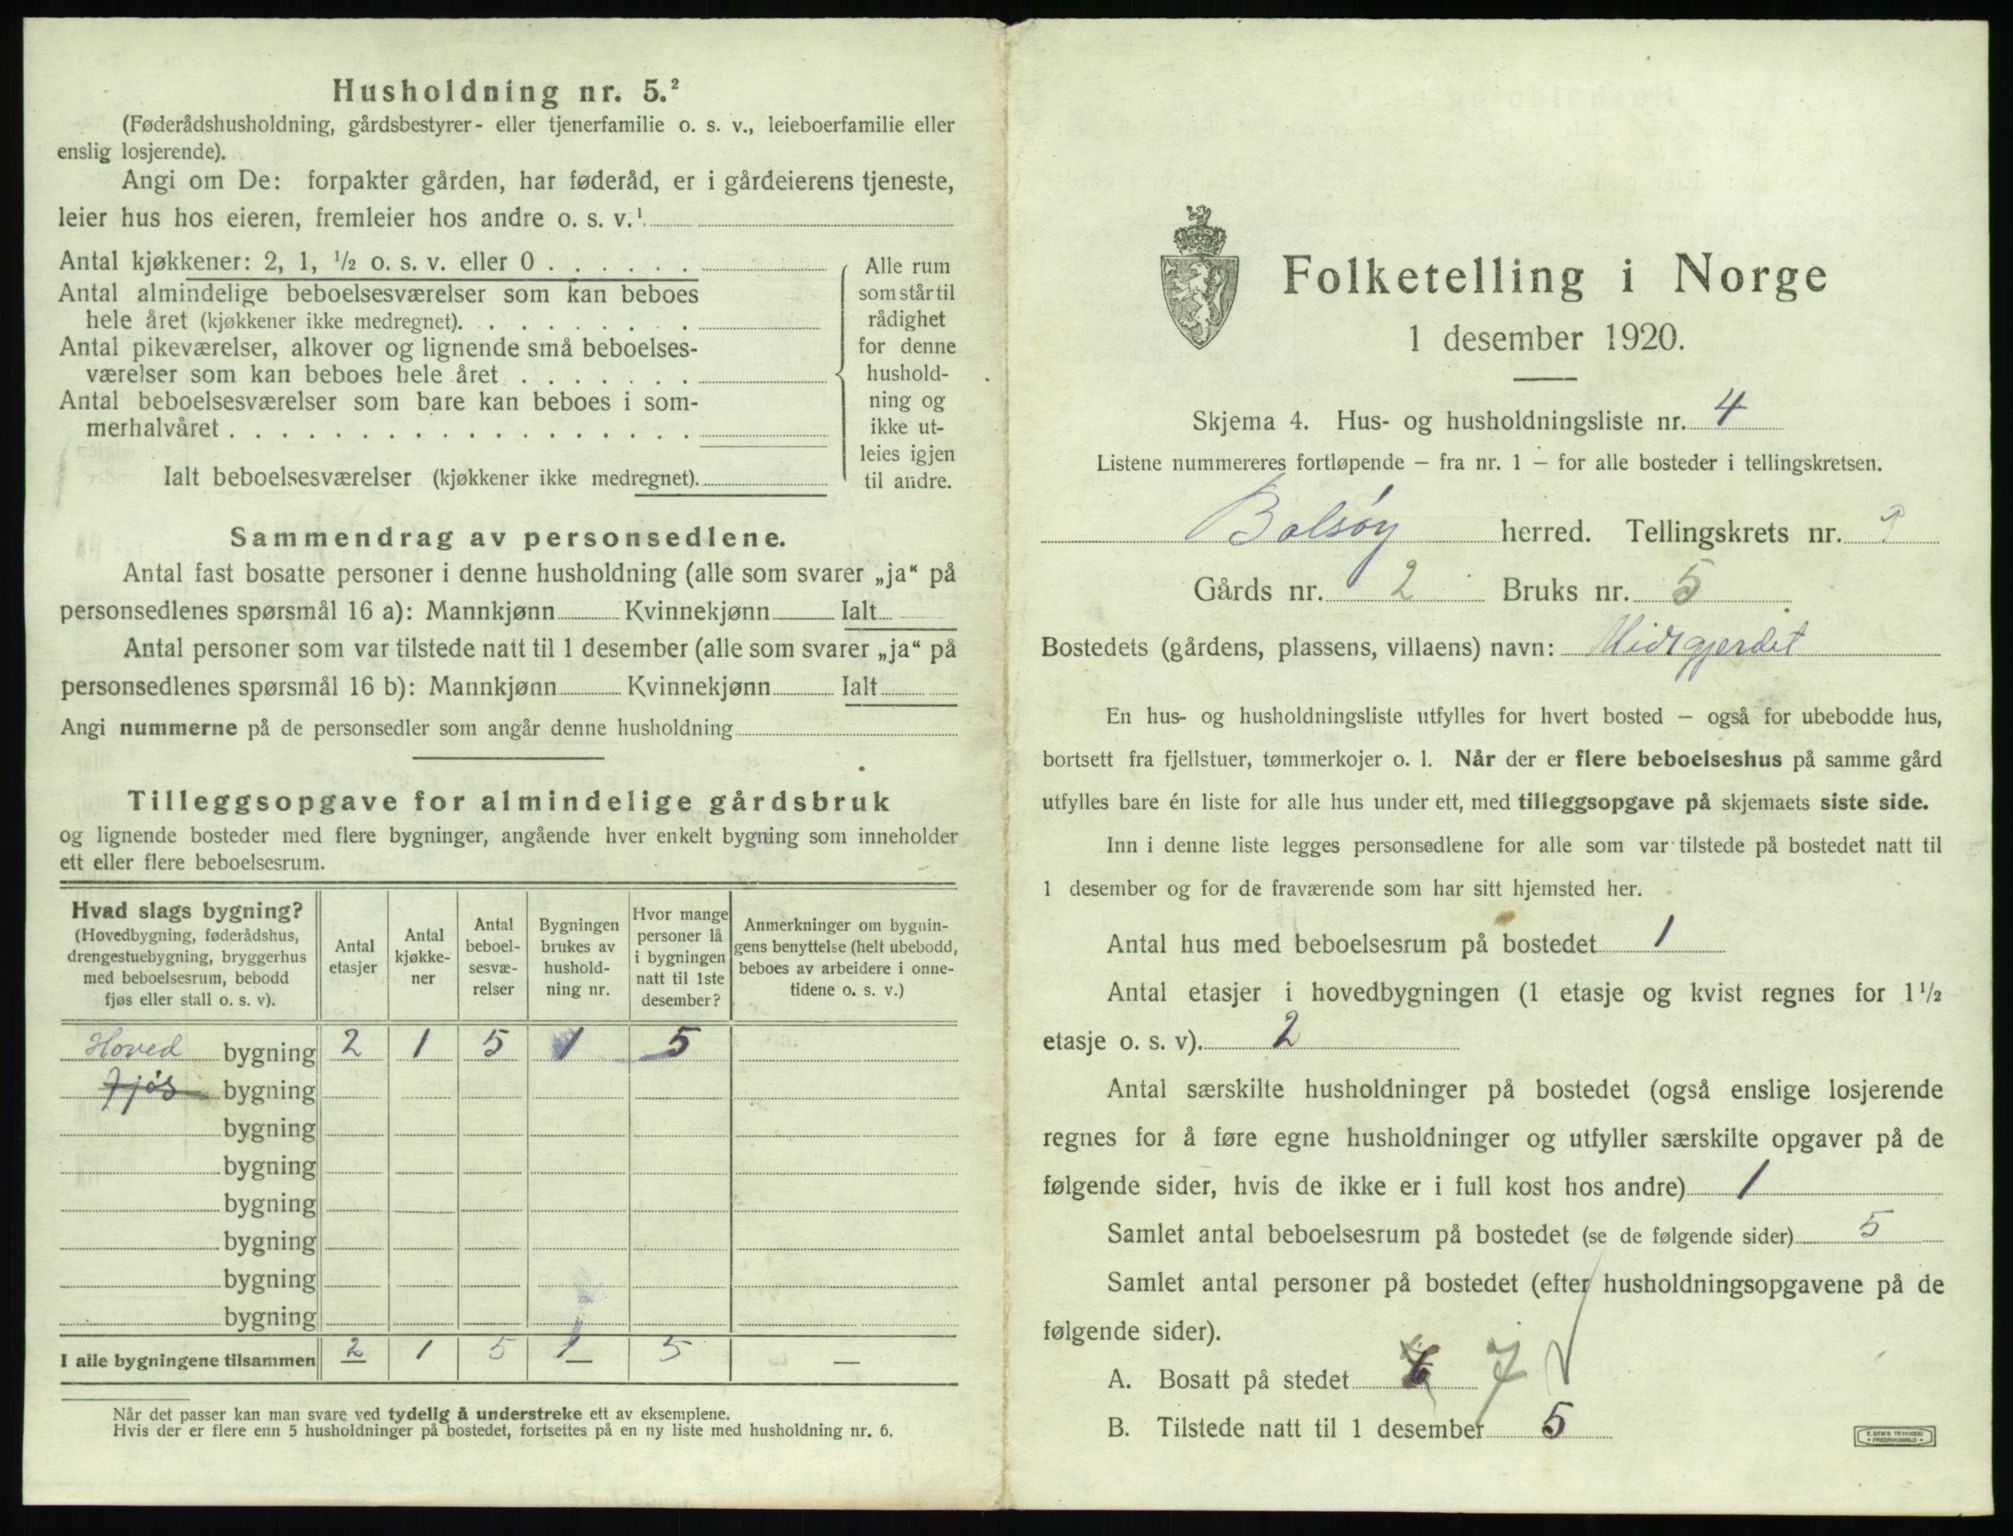 Husholdning nr. 5.²
(Føderådshusholdning, gårdsbestyrer- eller tjenerfamilie o. s. v., leieboerfamilie eller
enslig losjerende).
Angi om De: forpakter gården, har føderåd, er i gårdeierens tjeneste,
leier hus hos eieren, fremleier hos andre o. s. v.¹
Antal kjøkkener: 2, 1, ½ o. s. v. eller 0 . . . . . .
Antal almindelige beboelsesværelser som kan beboes
hele året (kjøkkener ikke medregnet). . . . . . . . .
Antal pikeværelser, alkover og lignende små beboelses-
værelser som kan beboes hele året . . . . . . .
Antal beboelsesværelser som bare kan beboes i som-
merhalvåret . . . . . . . . . . . . . . . . . .
Ialt beboelsesværelser (kjøkkener ikke medregnet).
Alle rum
som står til
rådighet
for denne
hushold-
ning og
ikke ut-
leies igjen
til andre.
Sammendrag av personsedlene.
Antal fast bosatte personer i denne husholdning (alle som svarer „ja“ på
personsedlenes spørsmål 16 a): Mannkjønn Kvinnekjønn Ialt
Antal personer som var tilstede natt til 1 desember (alle som svarer „ja“ på
personsedlenes spørsmål 16 b): Mannkjønn Kvinnekjønn Ialt
Angi nummerne på de personsedler som angår denne husholdning
Tilleggsopgave for almindelige gårdsbruk
og lignende bosteder med flere bygninger, angående hver enkelt bygning som inneholder
ett eller flere beboelsesrum.
Hvad slags bygning?
(Hovedbygning, føderådshus,
drengestuebygning, bryggerhus
med beboelsesrum, bebodd
fjøs eller stall o. s. v).
Antal
etasjer
Antal
kjøkke-
ner
Antal
beboel-
sesvæ-
relser
Bygningen
brukes av
hushold-
ning nr.
Hvor mange
personer lå
i bygningen
natt til 1ste
desember?
Anmerkninger om bygnin-
gens benyttelse (helt ubebodd,
beboes av arbeidere i onne-
tidene o. s. v.)
Hoved bygning 2 1 5 1 5
Fjøs bygning
bygning
bygning
bygning
bygning
bygning
bygning
I alle bygningene tilsammen 2 1 5 1 5 —
Når det passer kan man svare ved tydelig å understreke ett av eksemplene.
Hvis der er flere enn 5 husholdninger på bostedet, fortsettes på en ny liste med husholdning nr. 6.
Folketelling i Norge
1 desember 1920.
Skjema 4. Hus- og husholdningsliste nr. 4
Listene nummereres fortløpende – fra nr. 1 – for alle bosteder i tellingskretsen.
Bolsøy herred. Tellingskrets nr. 9
Gårds nr. 2 Bruks nr. 5
Bostedets (gårdens, plassens, villaens) navn: Midtgjerdet
En hus- og husholdningsliste utfylles for hvert bosted – også for ubebodde hus,
bortsett fra fjellstuer, tømmerkojer o. l. Når der er flere beboelseshus på samme gård
utfylles bare én liste for alle hus under ett, med tilleggsopgave på skjemaets siste side.
Inn i denne liste legges personsedlene for alle som var tilstede på bostedet natt til
1 desember og for de fraværende som har sitt hjemsted her.
Antal hus med beboelsesrum på bostedet 1
Antal etasjer i hovedbygningen (1 etasje og kvist regnes for 1½
etasje o. s. v). 2
Antal særskilte husholdninger på bostedet (også enslige losjerende
regnes for å føre egne husholdninger og utfyller særskilte opgaver på de
følgende sider, hvis de ikke er i full kost hos andre) 1
Samlet antal beboelsesrum på bostedet (se de følgende sider) 5
Samlet antal personer på bostedet (efter husholdningsopgavene på de
følgende sider).
A. Bosatt på stedet 7
B. Tilstede natt til 1 desember 5